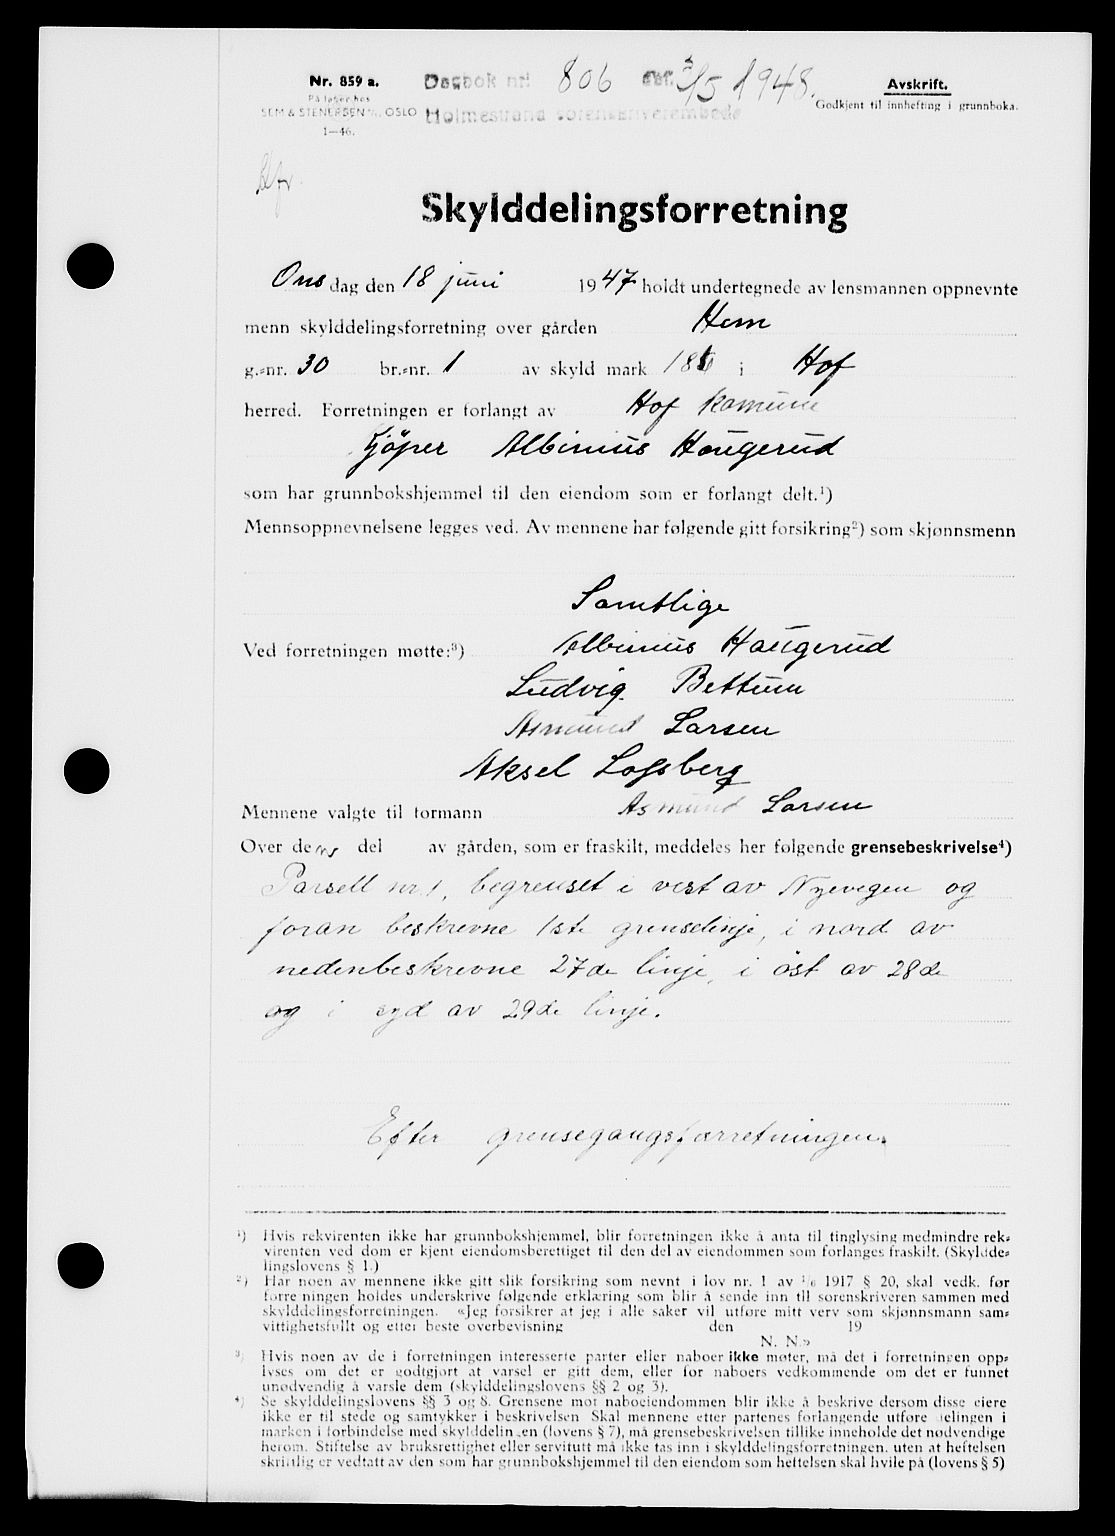 Nr. 859 a.
På lager hos
SEM & STENERSEN A/S, OSLO
1—46.
Dagbok nr. 806 3/5 1948.
Holmestrand sorenskriverembede
Avskrift.
Godkjent til innhefting i grunnboka.
Skylddelingsforretning
Onsdag den 18 juni 1947 holdt undertegnede av lensmannen oppnevnte
menn skylddelingsforretning over gården Hem
g.-nr. 30 br.-nr. 1 av skyld mark i Hof
herred. Forretningen er forlangt av Hof komune
Kjöper Albinius Haugerud
som har grunnbokshjemmel til den eiendom som er forlangt delt.¹)
Mennsoppnevnelsene legges ved. Av mennene har følgende gitt forsikring²) som skjønnsmenn
Samtlige
Ved forretningen møtte:³) Albinius Haugerud
Ludvig Bettum
Asmund Larsen
Aksel Lofsberg
Mennene valgte til formann Asmund Larsen
Over de del av gården, som er fraskilt, meddeles her følgende grensebeskrivelse⁴)
Parsell nr. 1, begrenset i vest av Nyevegen og
foran beskrevne 1ste grenselinje, i nord av
nedenbeskrevne 27de linje, i öst av 28de
og i syd av 29de linje.
Efter grensegangsforretningen.
¹) Hvis rekvirenten ikke har grunnbokshjemmel, blir forretningen ikke å anta til tinglysing medmindre rek-
virenten ved dom er kjent eiendomsberettiget til den del av eiendommen som forlanges fraskilt. (Skyldde-
lingslovens § 1.)
²) Har noen av mennene ikke gitt slik forsikring som nevnt i lov nr. 1 av 1/6 1917 § 20, skal vedk. før
forretningen holdes underskrive følgende erklæring som blir å sende inn til sorenskriveren sammen med
skylddelingsforretningen. «Jeg forsikrer at jeg i alle saker vil utføre mitt verv som skjønnsmann sam-
vittighetsfullt og etter beste overbevisning den 19
N. N.»
³) Hvis noen av de i forretningen interesserte parter eller naboer ikke møter, må det i forretningen opp-
lyses om det er godtgjort at varsel er gitt dem, eller for naboers vedkommende om det er funnet
unødvendig å varsle dem (skylddelingslovens §§ 2 og 3).
⁴) Se skylddelingslovens §§ 3 og 8. Grensene mot naboeiendommen blir ikke å beskrive dersom disse eiere
ikke er til stede og samtykker i beskrivelsen Skal mennene etter partenes forlangende utføre delingen i
marken i forbindelse med skylddelingen (lovens § 7), må grensebeskrivelsen tillike inneholde det nødvendige
herom. Stiftelse av bruksrettighet eller servitutt må ikke tas inn i skylddelingsforretningen, uten at heftelsen
skriftlig er vedtatt av den som har grunnbokshjemmel til den eiendom som heftelsen skal hvile på (lovens § 5)